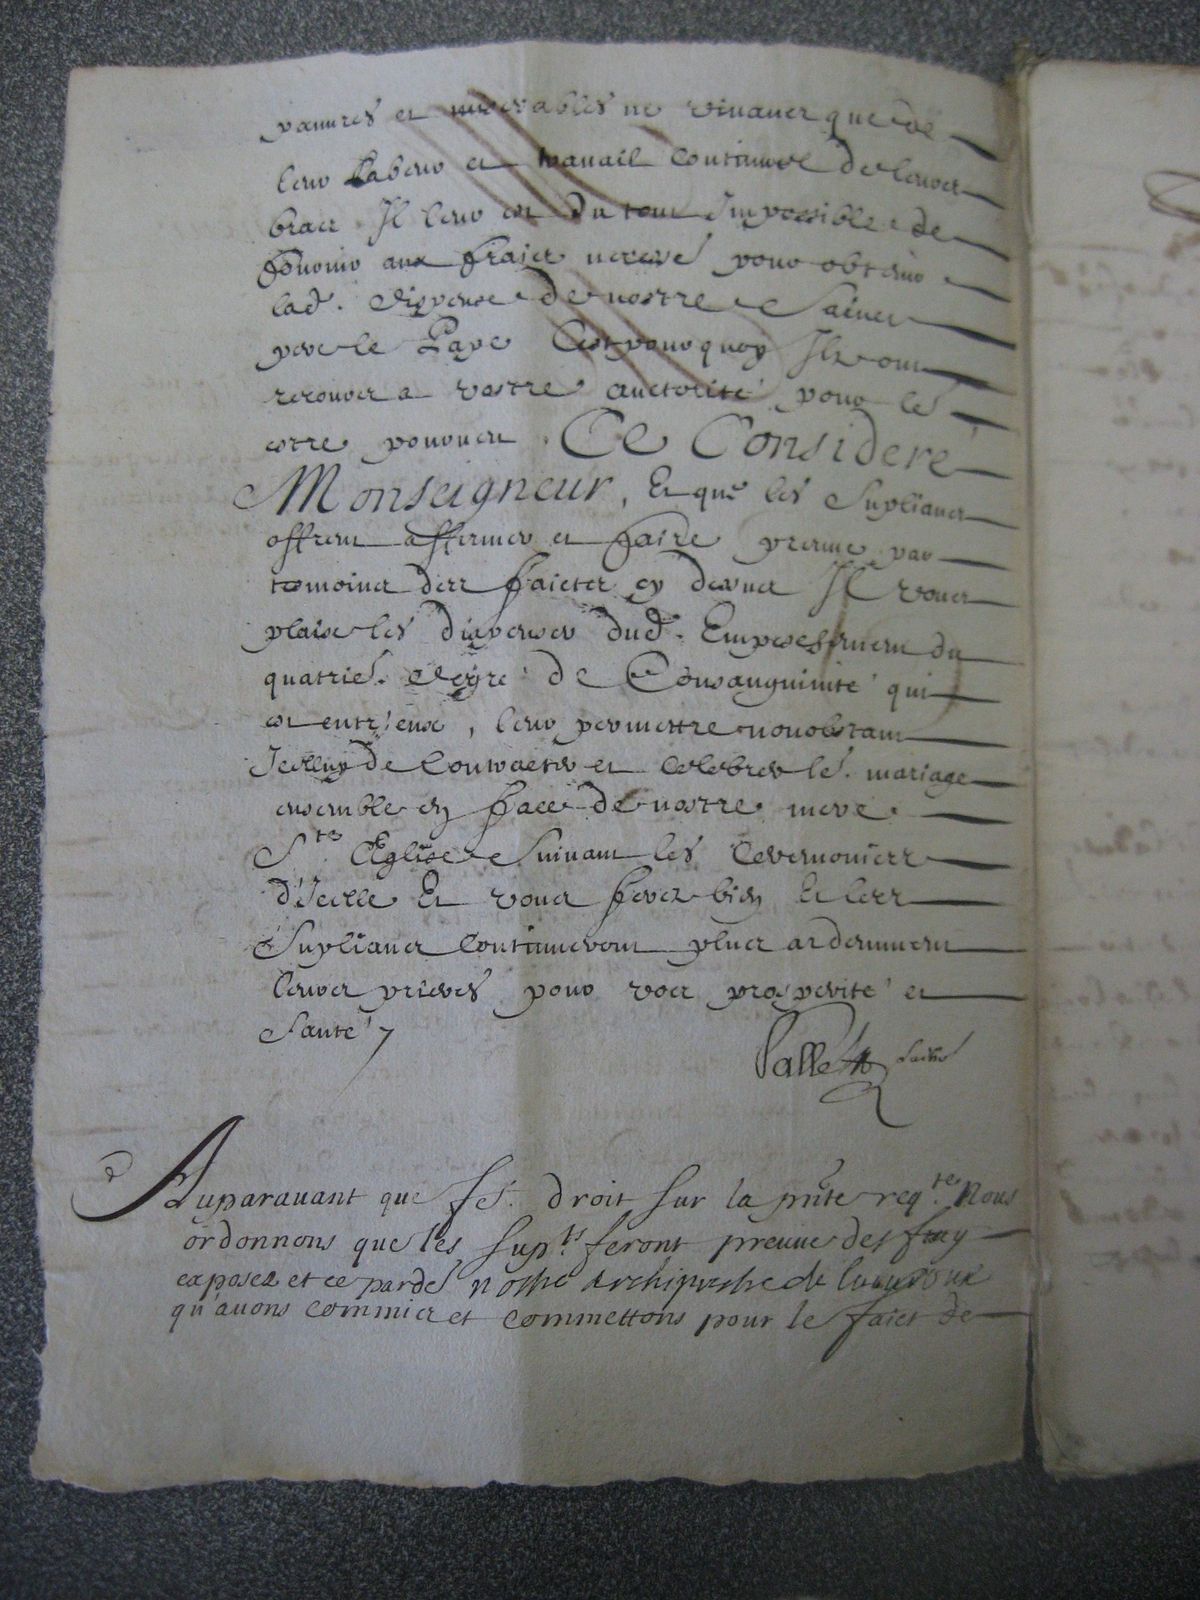 pauures et miserables ne viuans que de
leur labeur et trauail continuel de leurs
bras Il leur est du tout Impossible de
fournir aux fraiz necess.e pour obtenir
lad. dispense de nostre Sainct
pere le Pape Cest pourquoy Ilz ont
recours a vostre auctorité pour le
estre pourueu . Ce Consideré
Monseigneur, Et que les Suplians
offrent affermer et faire preuue par
temoins desz faictz cy dessus Il vous
plaise les dispenser dud. Empeschement du
quatrie. degré de Consanguinité qui
est entr'eux, leur permettre nonobstant
Icelluy de Contracter et Celebrer le . mariage
ensemble en face de nostre mere
S.te Eglise Suiuant les Ceremoniez
d'Icelle Et vous ferez bien Et lesz
Suplians Continueront plus ardemment
leurs prieres pour vos prosperité et
Santé
Auparauant que fe. droit sur la pnte req.te Nous
ordonnons que les sup.ts feront preuue des
exposez et ce pard. nostre Archiprestre de
qu'auons commis et commettons pour le faict de